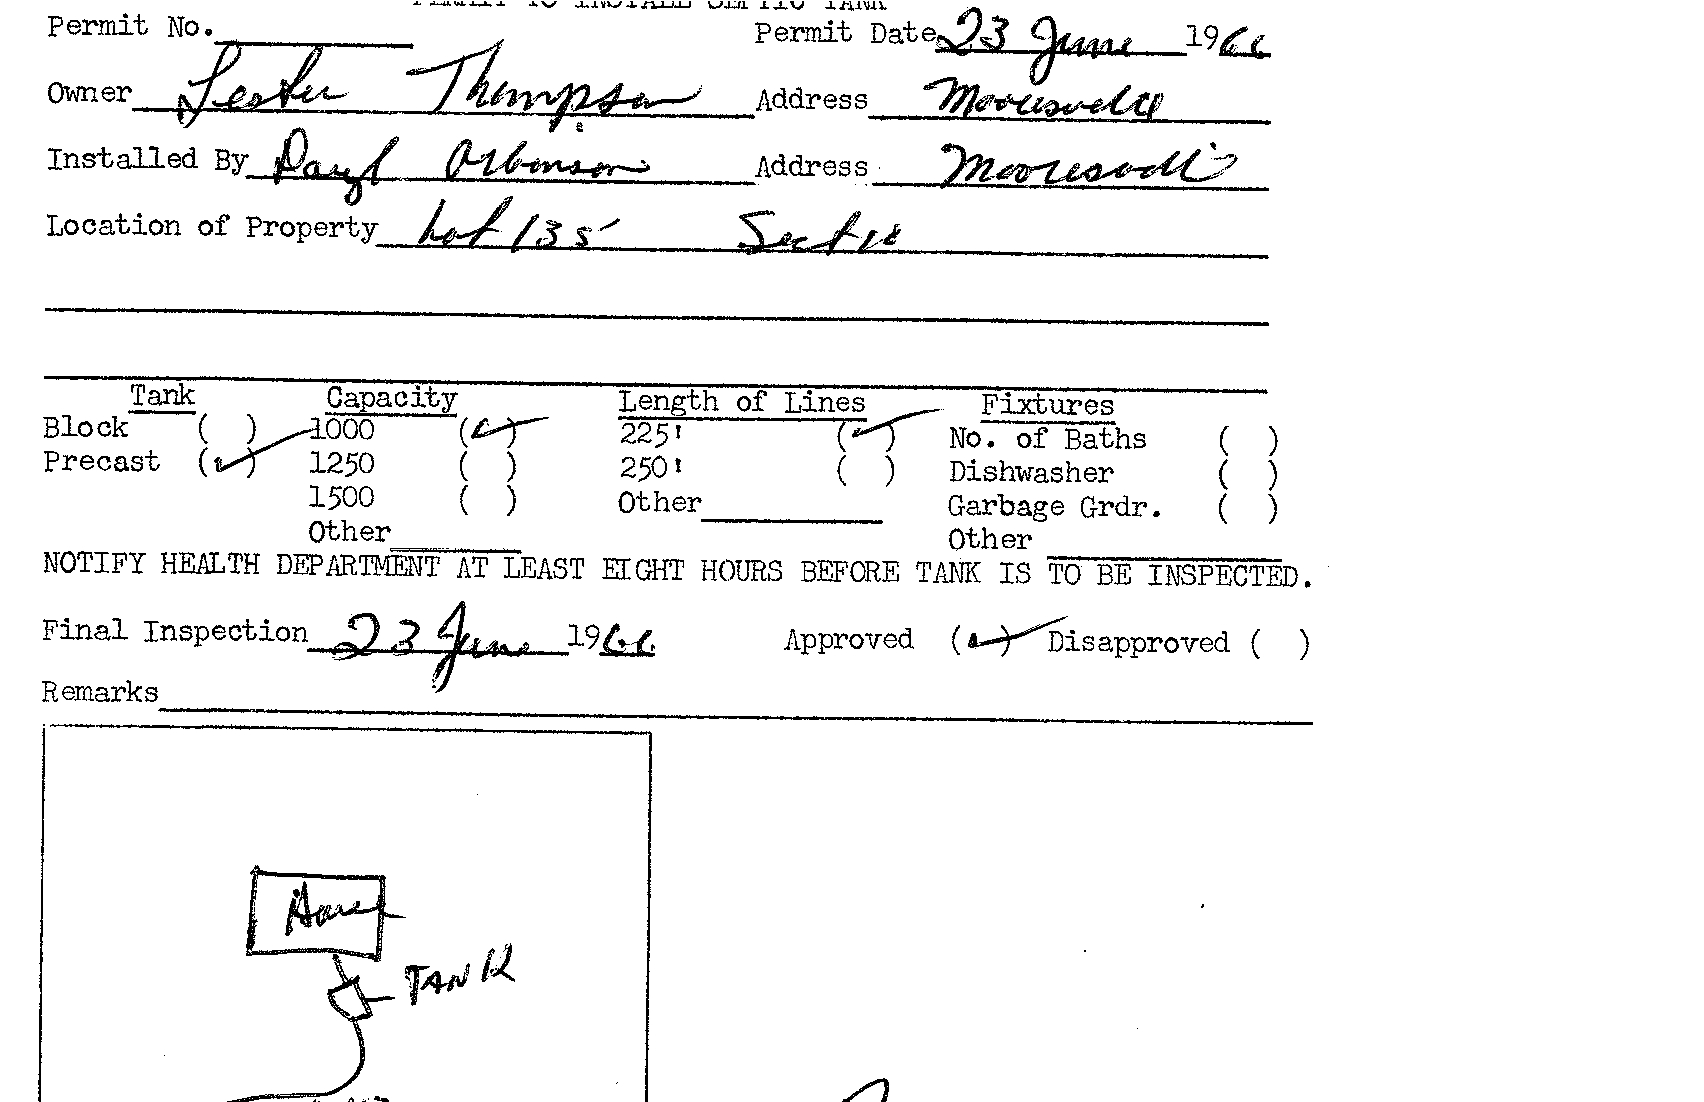 PERMIT TO INSTALL SEPTIC TANK
Permit No. Permit Date 23 June 1966
Owner Lester Thompson Address Mooresville
Installed By Daryl Address Mooresville
Location of Property Lot 135 Sect
Tank Capacity Length of Lines Fixtures
Block ( ) 1000 (✓) 225' (✓) No. of Baths ( )
Precast (✓) 1250 ( ) 250' ( ) Dishwasher ( )
1500 ( ) Other Garbage Grdr. ( )
Other Other
NOTIFY HEALTH DEPARTMENT AT LEAST EIGHT HOURS BEFORE TANK IS TO BE INSPECTED.
Final Inspection 23 June 1966 Approved (✓) Disapproved ( )
Remarks
House
TANK